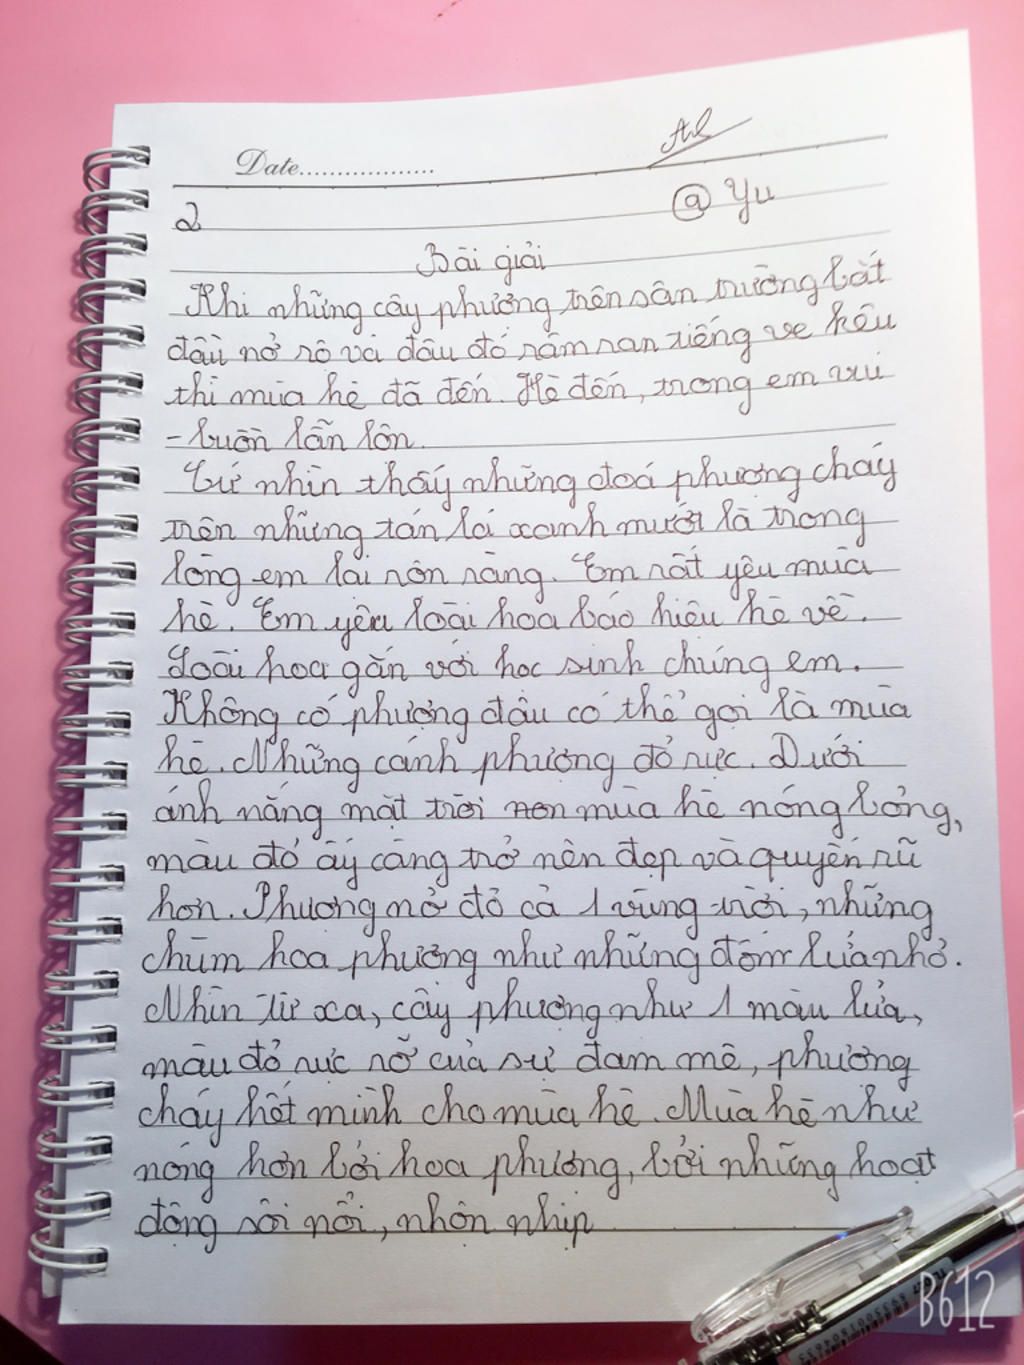 Date..................
2
@ Yu
Bài giải
Khi những cây phượng trên sân trường bắt
đầu nở rộ và đâu đó râm ran tiếng ve kêu
thì mùa hè đã đến. Hè đến, trong em vui
-buồn lẫn lộn.
Cứ nhìn thấy những đoá phượng cháy
trên những tán lá xanh mướt là trong
lòng em lại rộn ràng. Em rất yêu mùa
hè. Em yêu loài hoa báo hiệu hè về.
Loài hoa gắn với học sinh chúng em.
Không có phượng đâu có thể gọi là mùa
hè. Những cánh phượng đỏ rực. Dưới
ánh nắng mặt trời mùa hè nóng bỏng,
màu đỏ ấy càng trở nên đẹp và quyến rũ
hơn. Phượng nở đỏ cả 1 vùng trời, những
chùm hoa phượng như những đốm lửa nhỏ.
Nhìn từ xa, cây phượng như 1 màu lửa,
màu đỏ rực rỡ của sự đam mê, phượng
cháy hết mình cho mùa hè. Mùa hè như
nóng hơn bởi hoa phượng, bởi những hoạt
động sôi nổi, nhộn nhịp
B612